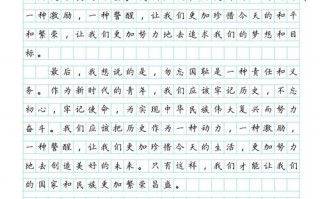 一种激励，一种警醒，让我们更加珍惜今天的和平
和繁荣，让我们更加努力地去追求我们的梦想和目
标。
最后，我想说的是，勿忘国耻是一种责任和义
务。作为新时代的青年，我们应该牢记历史，不忘
初心，牢记使命，为实现中华民族伟大复兴而努力
奋斗。我们应该把历史作为一种动力，一种激励，
一种警醒，让我们更加珍惜今天的生活，更加努力
地去创造美好的未来。只有这样，我们才能让我们
的国家和民族更加繁荣昌盛。